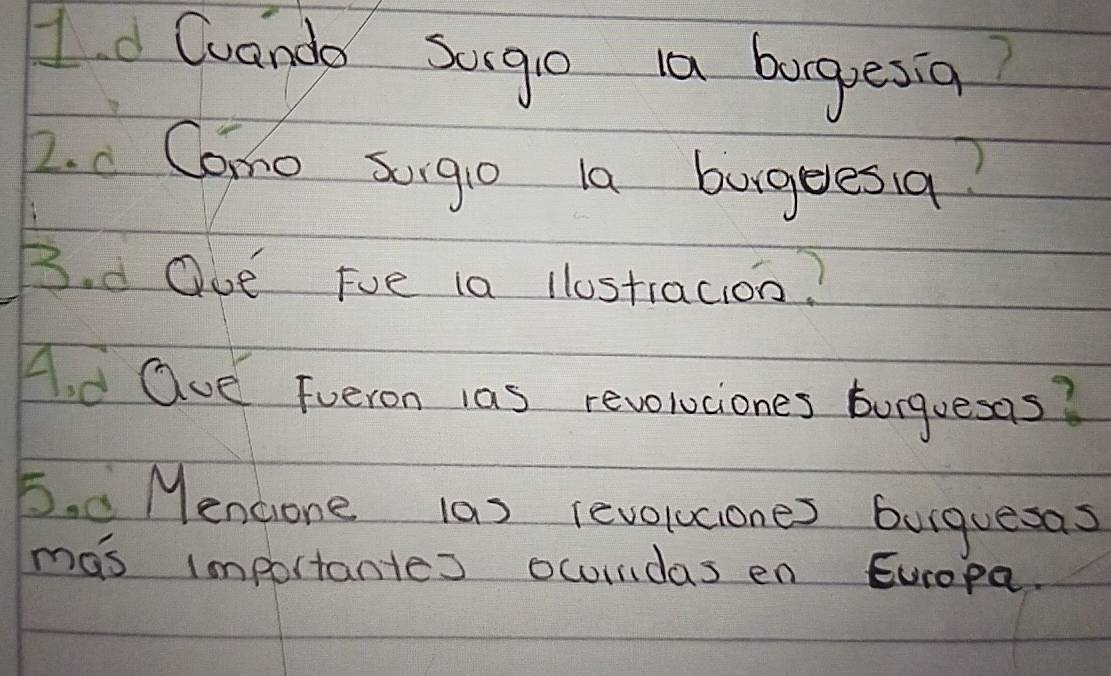 1.¿Cuándo surgio la burguesía?
2.¿Cómo surgio la burguesia?
3.¿Qué Fue la ilustración?
4.¿Qué Fueron las revoluciones burguesas?
5.¿Mencione las revoluciones burguesas
más importantes ocurridas en Europa.